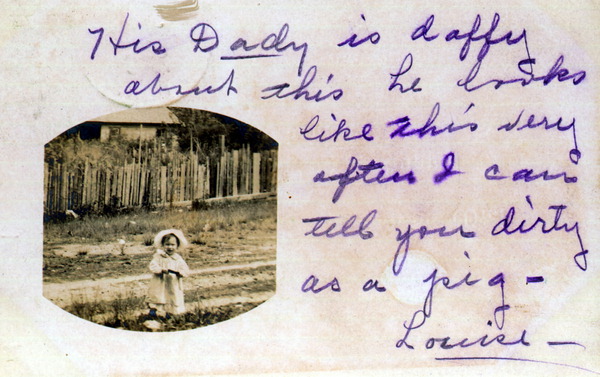 His Dady is daffy
about this he looks
like this very
often I can
tell you dirty
as a pig -
Louise -